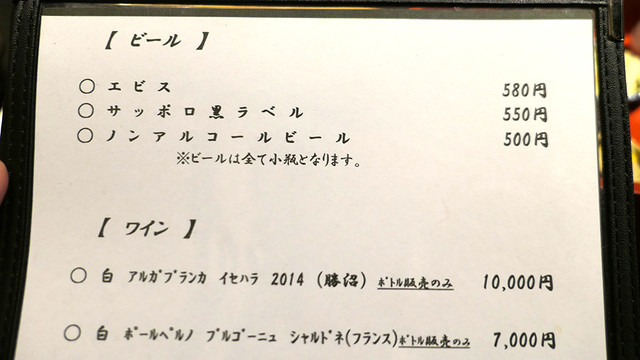 【 ビール 】
○ エビス 580円
○ サッポロ黒ラベル 550円
○ ノンアルコールビール 500円
※ビールは全て小瓶となります。
【 ワイン 】
○ 白 アルガブランカ イセハラ 2014 (勝沼) ボトル販売のみ 10,000円
○ 白 ポールペルノ ブルゴーニュ シャルドネ(フランス)ボトル販売のみ 7,000円